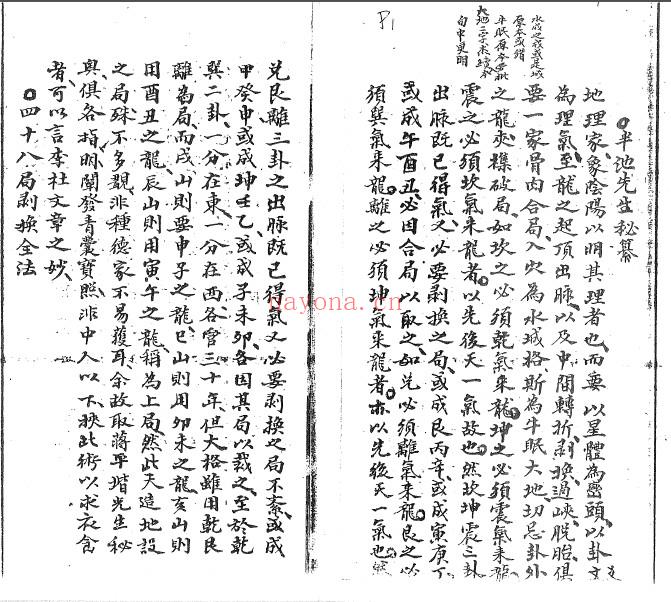 水城之城或是域
原本或錯
牛眠原本要批
大地二字未續本
自中更明
P1
半池先生秘纂
地理家象陰陽以明其理者也而要以星體為巒頭以卦爻
為理氣至龍之起頂出脉以及中間轉折剝換過峽脫胎俱
要一家骨肉合局入穴為水城格斯為牛眠大地切忌卦外
之龍夾襍破局如坎之必須乾氣來龍坤之必須震氣來龍
震之必須坎氣來龍者以先後天一氣故也然坎坤震三卦
出脉既已得氣又必要剝換之局或成艮丙辛或成寅庚丁
或成午酉丑必因合局以取之如兌必須離氣來龍艮之必
須巽氣來龍離之必須坤氣來龍者亦以先後天一氣也
兌艮離三卦之出脉既已得氣又必要剝換之局不紊或成
甲癸申或成坤壬乙或成子未卯各因其局以裁之至於乾
巽二卦一分在東一分在西各管三十年但大格雖用乾艮
離為局而戌山則要申子之龍巳山則用卯未之龍亥山則
用酉丑之龍辰山則用寅午之龍稱為上局然此天造地設
之局殊不多覯非種德家不易獲耳余故取蔣平堦先生秘
與俱各指明闡發青囊寶照非中人以下挾此術以求衣食
者可以言李杜文章之妙
四十八局剝換全法
nayona.cn